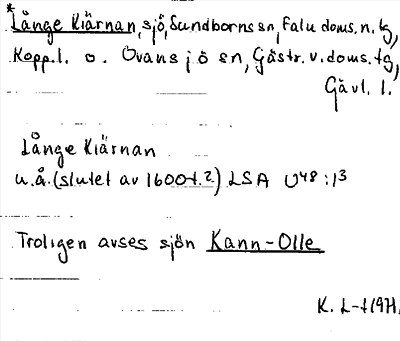 *Långe Kiärnan, sjö, Sundborns sn, Falu doms.n.tg,
Kopp.l. o. Ovansjö sn, Gästr.v.doms.tg,
Gävl. l.
Långe Kiärnan
u.å.(slutet av 1600-t.?) LSA U48:13
Troligen avses sjön Kann-Olle
K. L-t 1971.